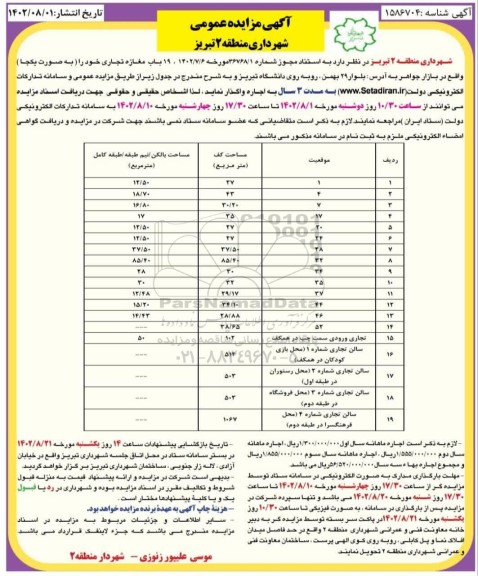 آگهی شناسه : ۱۵۸۶۷۰۴
تاریخ انتشار: ۱۴۰۲/۰۸/۰۱
آگهی مزایده عمومی
شهرداری منطقه ۲ تبریز
شهرداری منطقه ۲ تبریز در نظر دارد به استناد مجوز شماره ۳۶۷۶۸/۱ مورخه ۱۴۰۲/۷/۶ ، ۱۹ باب مغازه تجاری خود را ( به صورت یکجا )
واقع در بازار جواهر به آدرس : بلوار ۲۹ بهمن ، روبه روی دانشگاه تبریز و به شرح مندرج در جدول زیر از طریق مزایده عمومی و سامانه تدارکات
الکترونیکی دولت (www.Setadiran.ir) به مدت ۳ سال به اجاره واگذار نماید . لذا اشخاص حقیقی و حقوقی جهت دریافت اسناد مزایده
می توانند از ساعت ۱۰/۳۰ روز دوشنبه مورخه ۱۴۰۲/۸/۱ تا ساعت ۱۷/۳۰ روز چهارشنبه مورخه ۱۴۰۲/۸/۱۰ به سامانه تدارکات الکترونیکی
دولت (ستاد ایران) مراجعه نمایند. لازم به ذکر است متقاضیانی که عضو سامانه ستاد نمی باشند جهت شرکت در مزایده و دریافت گواهی
امضاء الکترونیکی ملزم به ثبت نام در سامانه مذکور می باشند.
ردیف موقعیت مساحت کف (متر مربع) مساحت بالکن/نیم طبقه/طبقه کامل (مترمربع)
۱ ۱ ۲۷ ۱۲/۵۰
۲ ۴ ۴۳ ۱۸/۷۰
۳ ۷ ۳۰/۲۰ ۱۶/۸۰
۴ ۱۷ ۳۵ ۱۷
۵ ۲۰ ۲۷ ۱۲/۵۰
۶ ۲۴ ۲۷ ۱۲/۵۰
۷ ۲۸ ۳۷/۵۰ ۳۷/۵۰
۸ ۳۲ ۸۵/۴۰ ۸۵/۴۰
۹ ۳۴ ۳۰ ۲۸
۱۰ ۳۵ ۳۲ ۳۰
۱۱ ۳۷ ۲۹/۱۷ ۱۲/۴۸
۱۲ ۴۴ ۳۴/۱۰ ۱۵/۲۰
۱۳ ۴۶ ۲۸/۸۸ ۱۴/۴۳
۱۴ ۵۲ ۳۸/۶۵ ---
۱۵ تجاری ورودی سمت چپ در همکف ۱۰۲ ۵۰
۱۶ سالن تجاری شماره ۱ (محل بازی کودکان در همکف) ۵۱۴ ---
۱۷ سالن تجاری شماره ۲ (محل رستوران در طبقه اول) ۵۰۳ ---
۱۸ سالن تجاری شماره ۳ (محل فروشگاه در طبقه دوم) ۵۰۳ ---
۱۹ سالن تجاری شماره ۴ (محل فرهنگسرا در طبقه دوم) ۱۰۶۷ ---
ParsNamadData
۰۲۱-۸۸۳۴۹۶۷۰-۵
- لازم به ذکر است اجاره ماهانه سال اول ۱/۳۰۰/۰۰۰/۰۰۰ ریال ، اجاره ماهانه
سال دوم ۱/۵۵۵/۰۰۰/۰۰۰ ریال ، اجاره ماهانه سال سوم ۱/۸۵۵/۰۰۰/۰۰۰ ریال
و مجموع اجاره بهاء سه سال ۵۶/۵۲۰/۰۰۰/۰۰۰ ریال می باشد.
- مهلت بارگذاری مدارک به صورت الکترونیکی در سامانه ستاد توسط
مزایده گر از ساعت ۱۷/۳۰ روز چهارشنبه مورخه ۱۴۰۲/۸/۱۰ تا ساعت
۱۷/۳۰ روز شنبه مورخه ۱۴۰۲/۸/۲۰ می باشد و تنها سپرده شرکت در
مزایده پس از بارگذاری در سامانه ، به صورت فیزیکی تا ساعت ۱۰/۳۰ روز
یکشنبه مورخه ۱۴۰۲/۸/۲۱ در پاکت سر بسته توسط مزایده گر به دبیر
خانه معاونت فنی و عمرانی شهرداری منطقه ۲ واقع در حد فاصل میدان
افلاک نما و پل کابلی ، روبه روی کوی الهی پرست ، ساختمان معاونت فنی
و عمرانی شهرداری منطقه ۲ تحویل نمایند.
- تاریخ بازگشایی پیشنهادات ساعت ۱۴ روز یکشنبه مورخه ۱۴۰۲/۸/۲۱
در بستر سامانه ستاد در محل اتاق جلسه شهرداری تبریز واقع در خیابان
آزادی ، لاله زار جنوبی ، ساختمان شهرداری تبریز برگزار خواهد گردید.
- بدیهی است شرکت در مزایده و ارائه پیشنهاد قیمت به منزله قبول
شروط و تکالیف مقرر در اسناد مزایده بوده و شهرداری در رد یا قبول
یک و یا کلیه پیشنهادات مختار است .
- هزینه چاپ آگهی به عهده برنده مزایده خواهد بود.
- سایر اطلاعات و جزئیات مربوط به مزایده در اسناد
مزایده مندرج می باشد که جزء لاینفک قرارداد می باشد.
موسی علیپور زنوزی - شهردار منطقه ۲